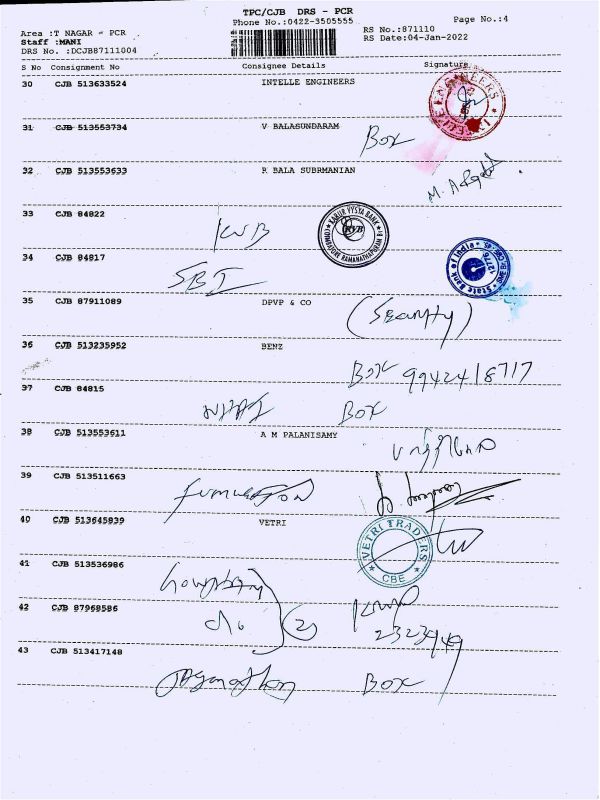 TPC/CJB DRS - PCR
Phone No.:0422-3505555
Page No.:4
Area :T NAGAR - PCR
RS No.:871110
Staff :MANI
RS Date:04-Jan-2022
DRS No. :DCJB87111004
S No Consignment No Consignee Details Signature
30 CJB 513633524 INTELLE ENGINEERS
31 CJB 513553734 V BALASUNDARAM
Box
32 CJB 513553633 R BALA SUBRMANIAN
33 CJB 84822
KVB
KARUR VYSYA BANK
KVB
COIMBATORE RAMANATHAPURAM
34 CJB 84817
SBI
State Bank of India
12776
35 CJB 87911089 DPVP & CO
(Security)
36 CJB 513235952 BENZ
Box 9942418717
37 CJB 84815
Box
38 CJB 513553611 A M PALANISAMY
39 CJB 513511663
40 CJB 513645839 VETRI
VETRI TRADERS
CBE
41 CJB 513536986
42 CJB 87968586
(2)
2323949
43 CJB 513417148
Box